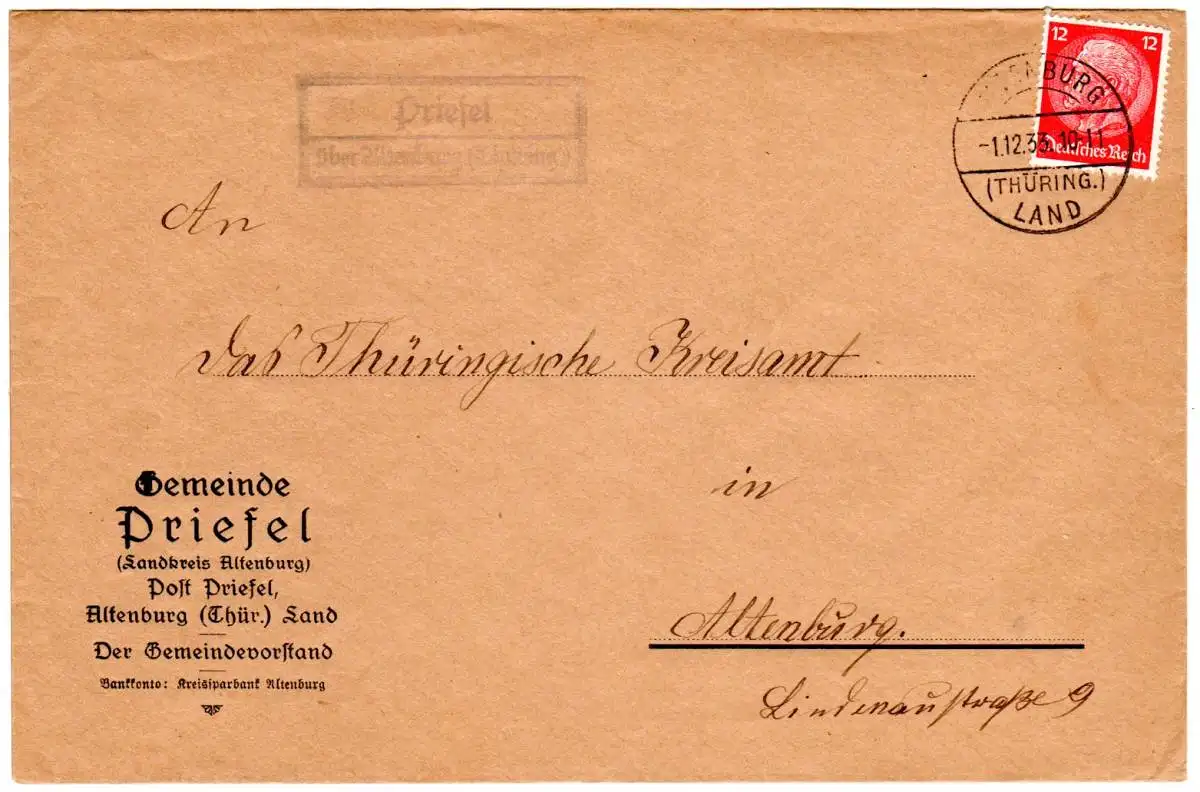 12 12
Deutsches Reich
BURG
-1.12.33. 10-11
(THÜRING.)
LAND
Priesel
über Altenburg (Thüring.)
An
das Thüringische Kreisamt
in
Altenburg.
Lindenaustraße 9
Gemeinde
Priesel
(Landkreis Altenburg)
Post Priesel,
Altenburg (Thür.) Land
Der Gemeindevorstand
Bankkonto: Kreissparbank Altenburg